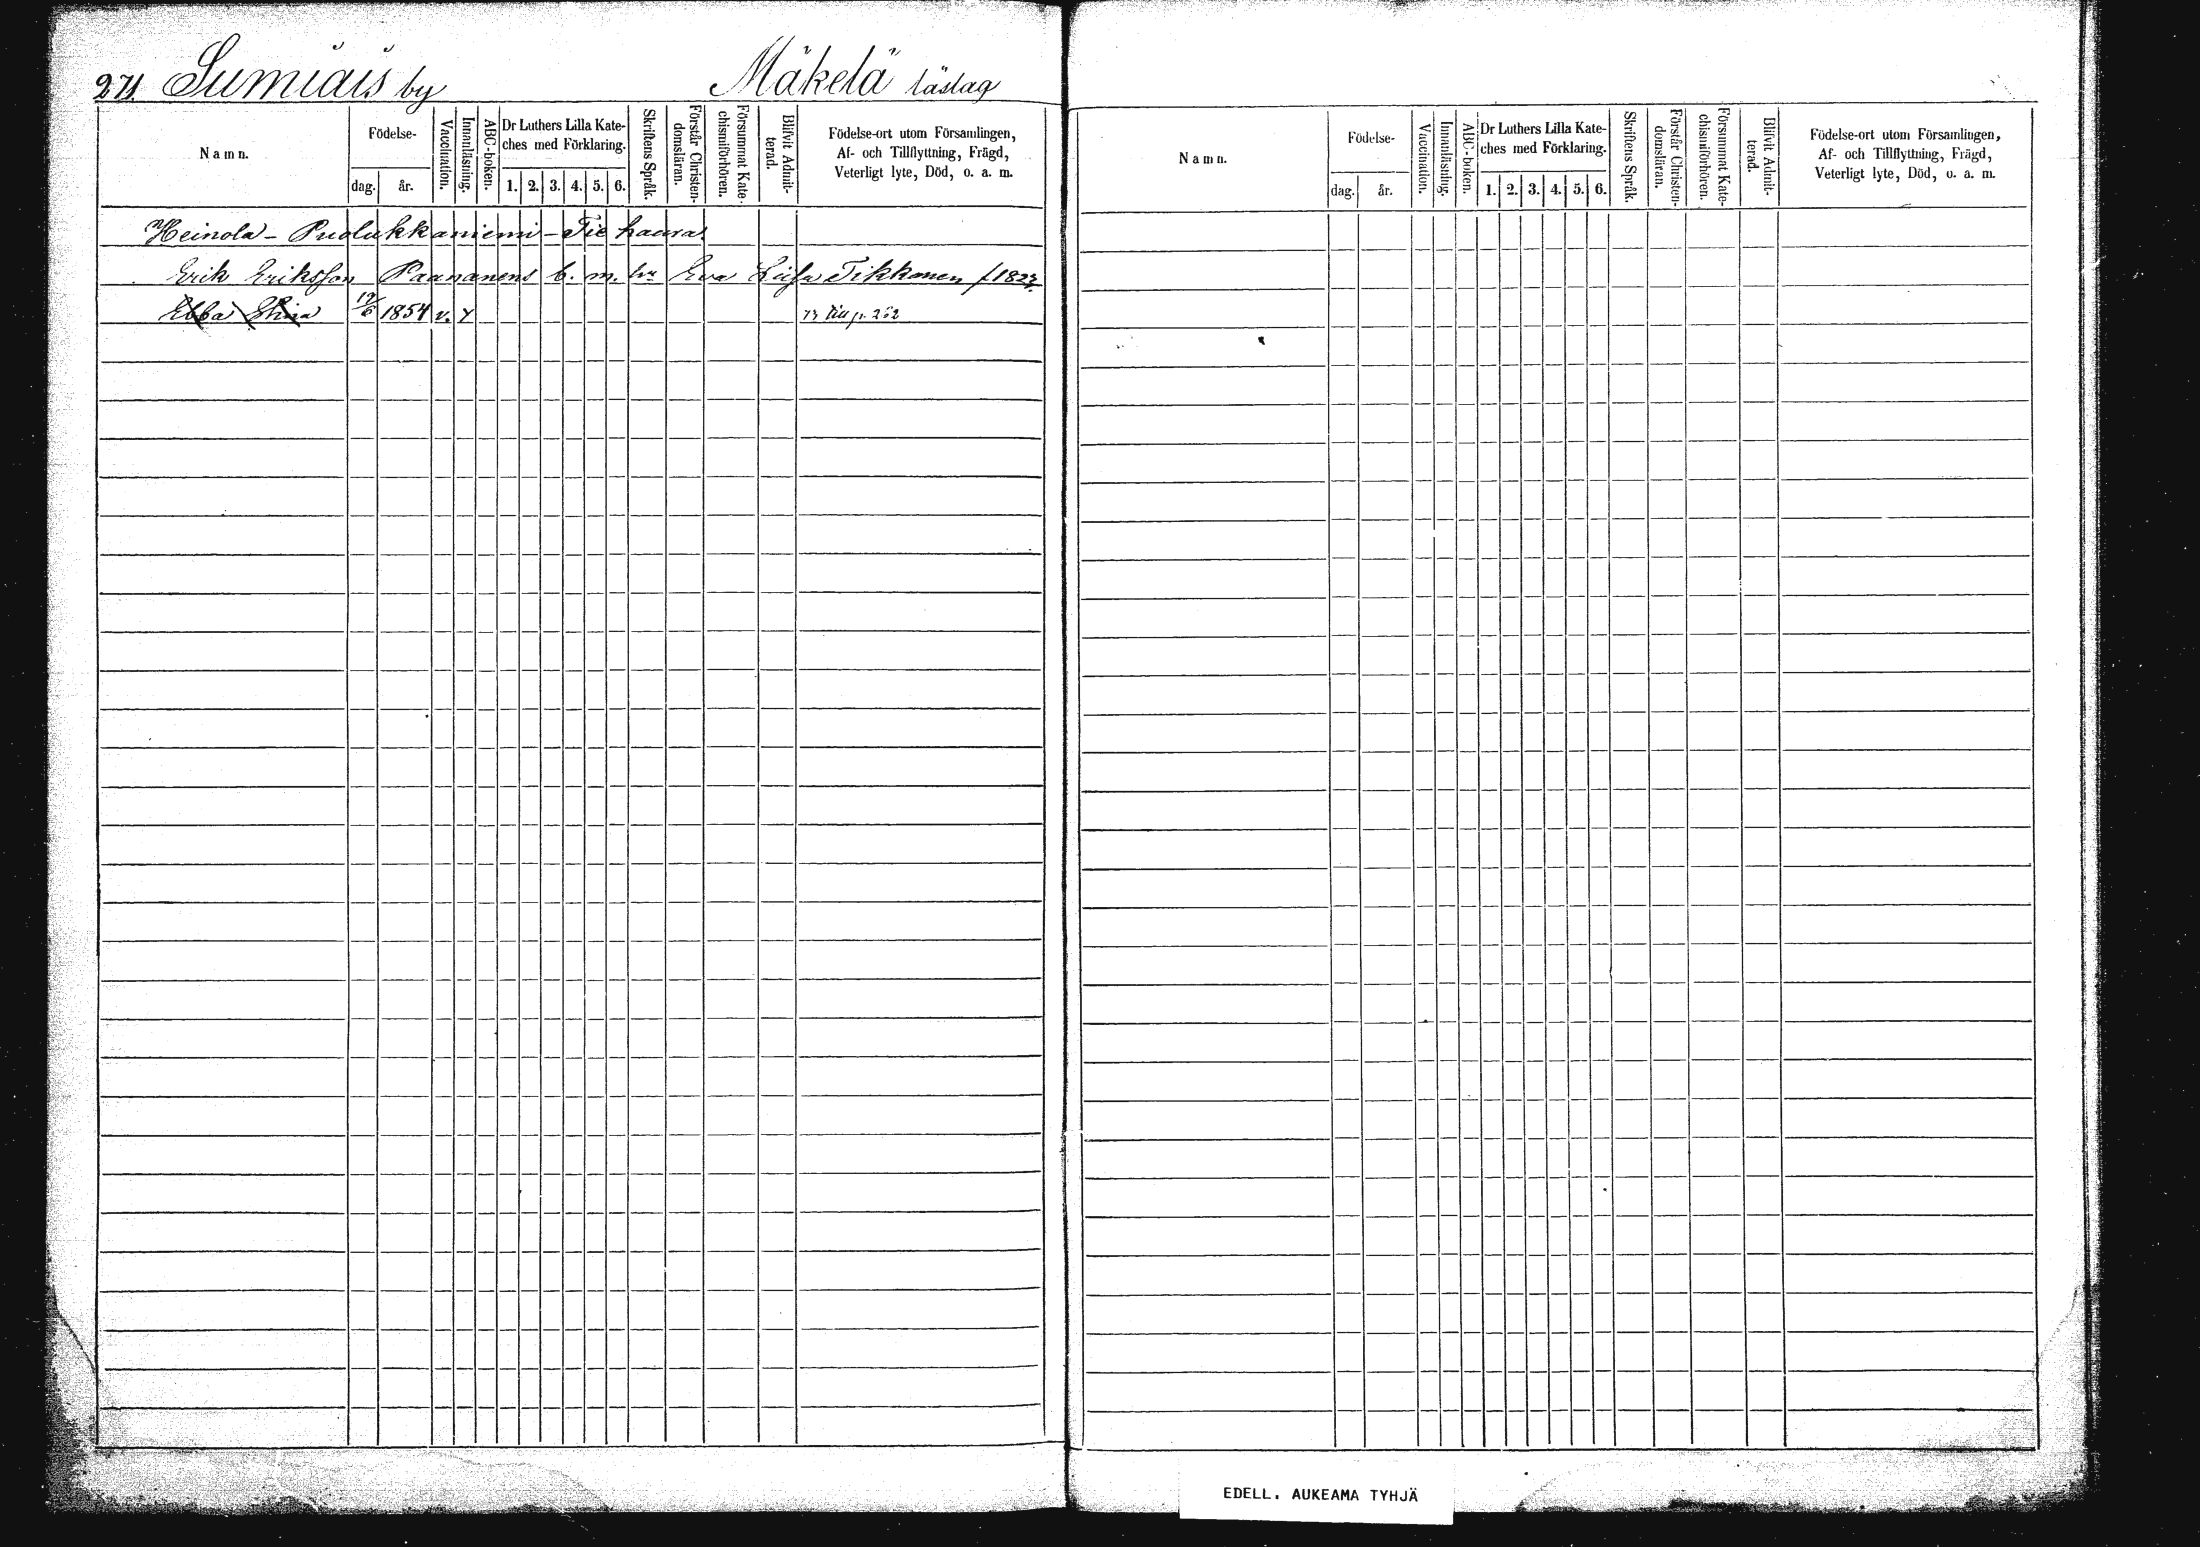 271. Sumiais by Mäkelä läslag
Namn.
Födelse-
dag. år.
Vaccination.
Innanläsning.
ABC-boken.
Dr Luthers Lilla Kate-
ches med Förklaring.
1. 2. 3. 4. 5. 6.
Skriftens Språk.
Förstår Christen-
domsläran.
Försummat Kate-
chismiförhören.
Blifvit Admit-
terad.
Födelse-ort utom Församlingen,
Af- och Tillflyttning, Frägd,
Veterligt lyte, Död, o. a. m.
Heinola - Puolukkaniemi - Tie haara.
Erik Eriksson Paananens b. m. hu Eva Liisa Tikkanen f 1823.
Ebba Stina 19/6 1854 v. Y 73 till p. 262
Namn.
Födelse-
dag. år.
Vaccination.
Innanläsning.
ABC-boken.
Dr Luthers Lilla Kate-
ches med Förklaring.
1. 2. 3. 4. 5. 6.
Skriftens Språk.
Förstår Christen-
domsläran.
Försummat Kate-
chismiförhören.
Blifvit Admit-
terad.
Födelse-ort utom Församlingen,
Af- och Tillflyttning, Frägd,
Veterligt lyte, Död, o. a. m.
EDELL. AUKEAMA TYHJÄ